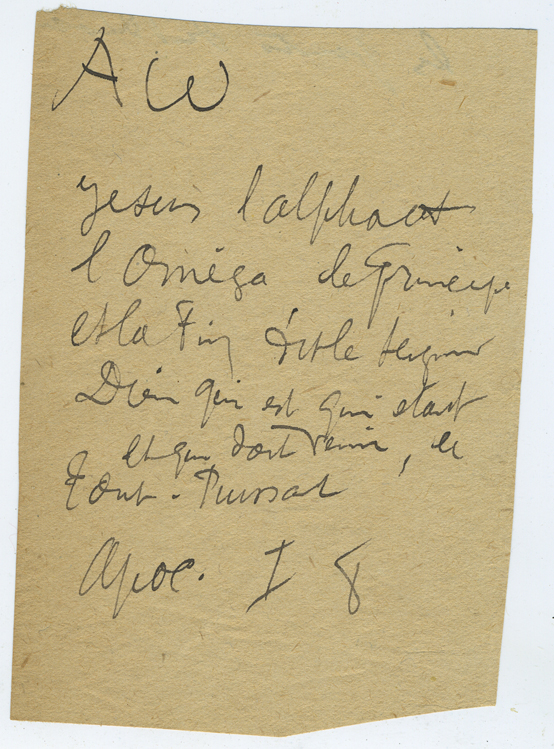 A ω
Je suis l'alpha et
l'Oméga le Principe
et la Fin dit le Seigneur
Dieu qui est qui était
et qui doit venir, le
Tout-Puissant
Apoc. I 8